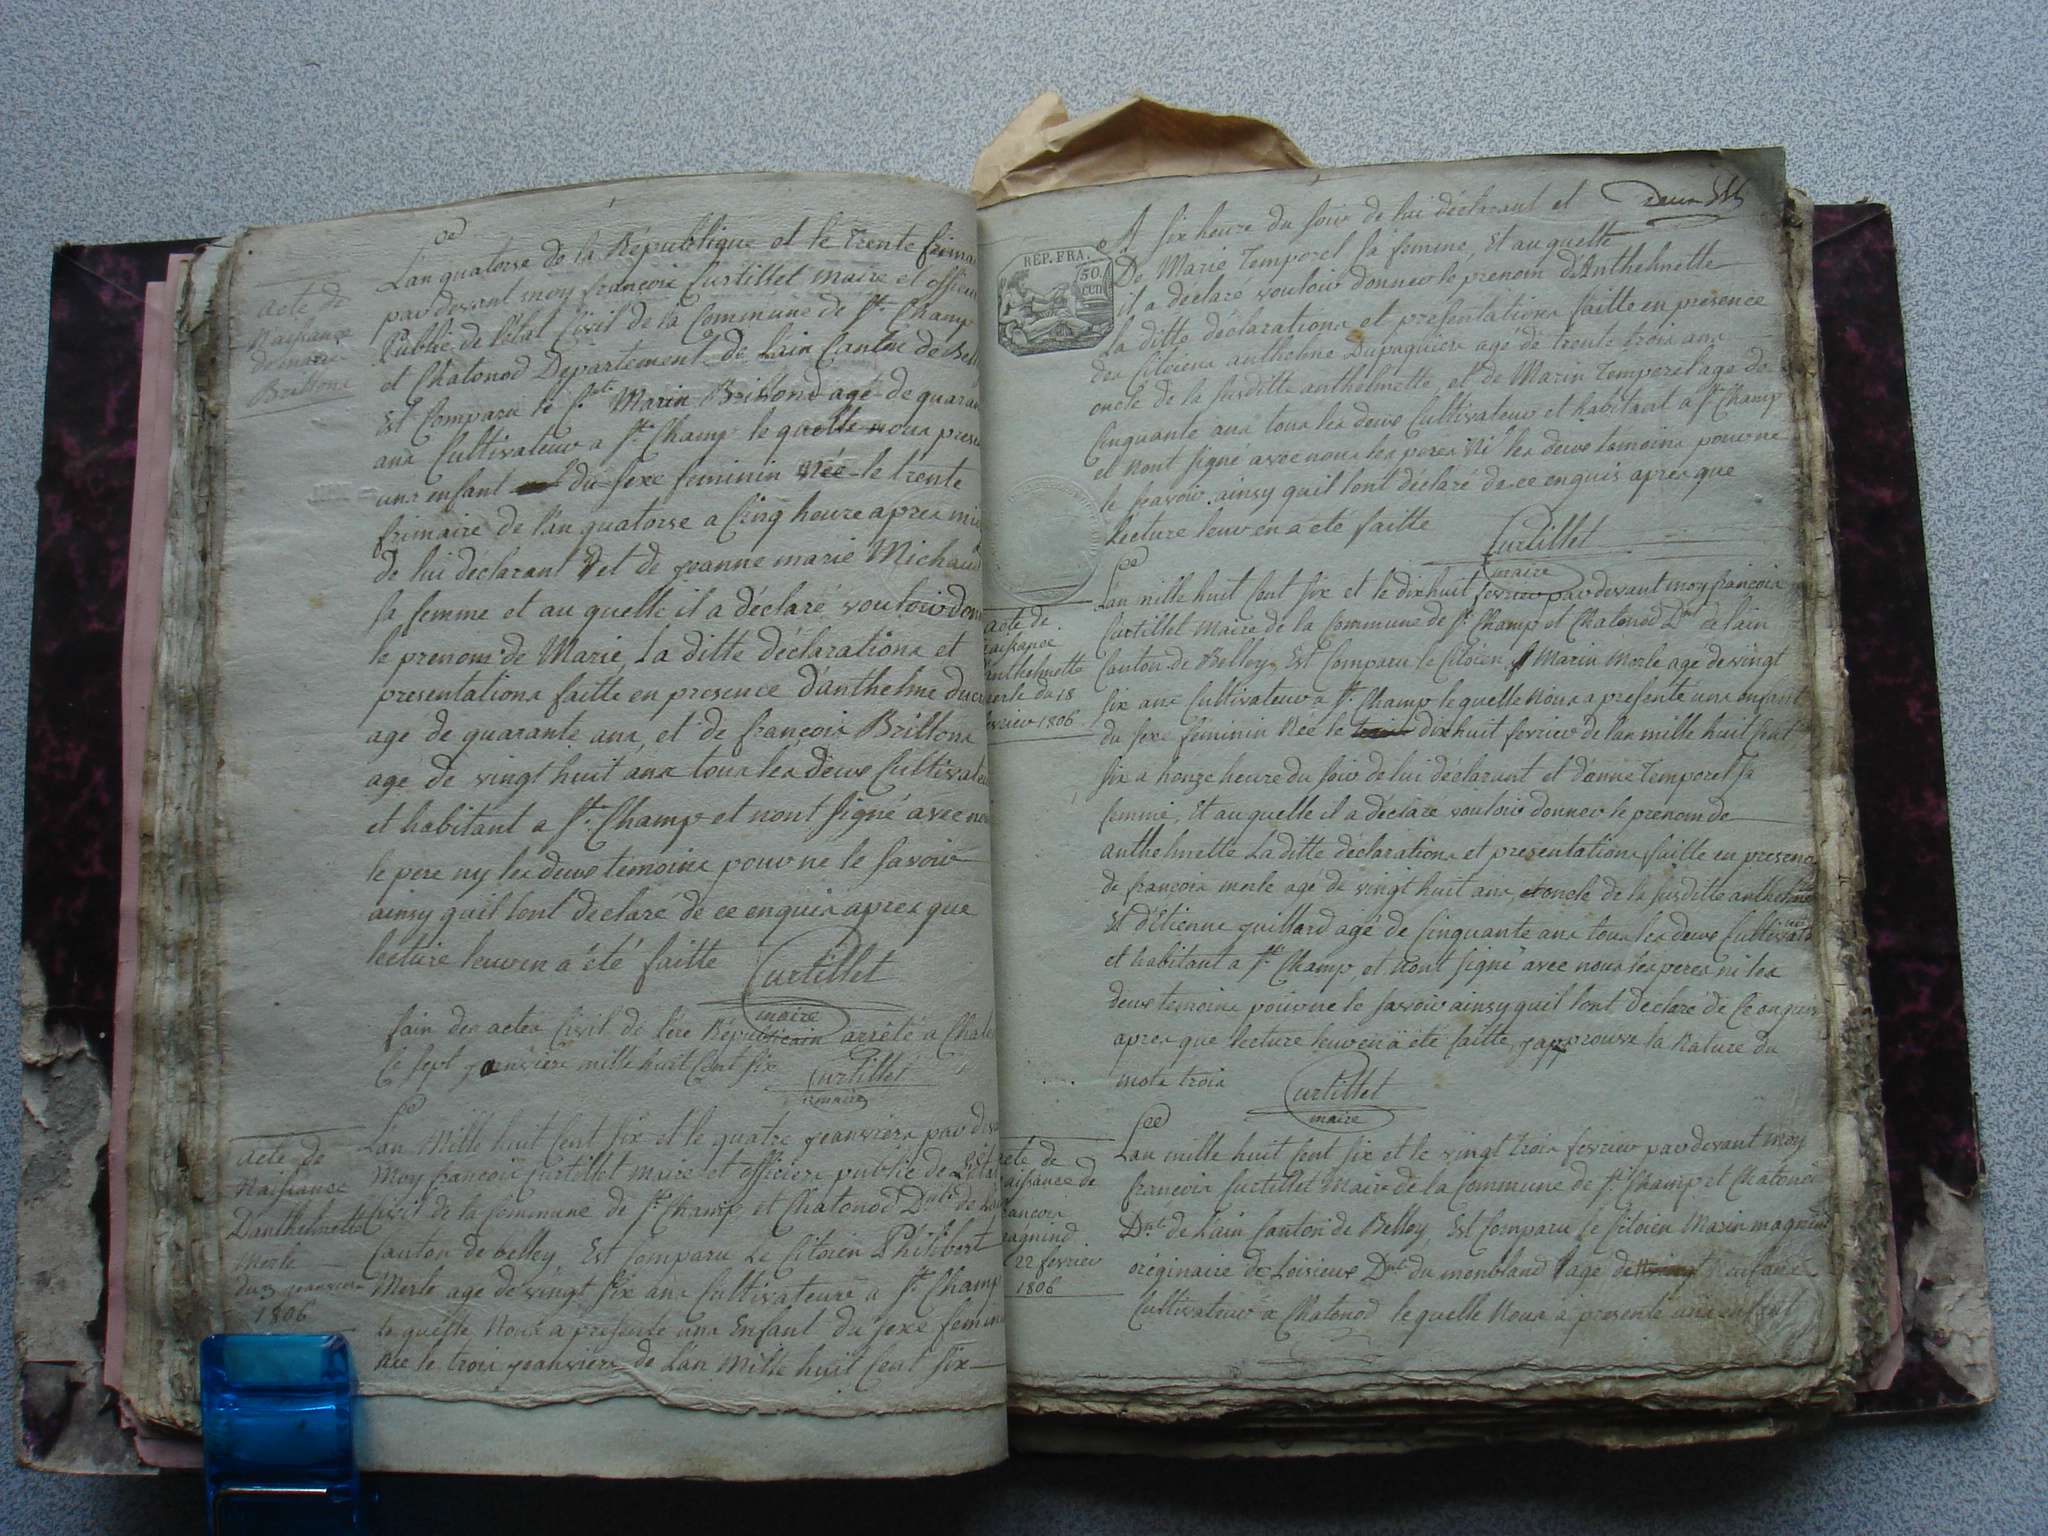 Lan quatorse de la République et le trente frima
pardevant moy françois Curtillet maire et officie
Public de l'état Civil de la Commune de St. Champ
et Chatonod Departement de lain Canton de Bell
Est Comparu le Marin Brillond agé de quaran
ans Cultivateur a St. Champ le quelle nous prese
une enfant du sexe feminin Née le trente
frimaire de l'an quatorse a Cinq heure apres mi
de lui déclarant et de jeanne marie Michaud
sa femme et au quelle il a déclaré vouloir don
le prenom de Marie, la ditte déclarations et
presentations faitte en presence d'anthelme duc
agé de quarante ans, et de françois Brillond
agé de vingt huit ans tous les deux Cultivateu
et habitant a St. Champ et nont signé avec no
le pere ny les deux temoins pour ne le savoir
ainsy quil lont declaré de ce enquis apres que
lecture leur en a été faitte Curtillet
maire
fain des actes Civil de l'ere Républicain arrêté a Chato
Ce sept janviere mille huit Cent six Curtillet
maire
Lan Mille huit Cent six et le quatre jeanviere par dev
moy françois Curtillet maire et officiers public de L'état
civil de la Commune de St. Champ et Chatonod Dmt. de Lain
Canton de belley Est Comparu Le Citoien Philibert
Merle age de vingt six ans Cultivateure a St. Champ
le quelle Nous a presente une Enfant du sexe femini
née le trois jeanviere de Lan Mille huit Cent six
acte de
Naissance
de marie
Brillond
acte de
Naissance
Danthelmette
Merle
du 3 jeanviere
1806
deux
A six heure du soir de lui déclarant et
De Marie Temporel sa femme, Et au quelle
il a déclaré vouloir donner le prenom d'Anthelmette
La ditte déclarations et presentations faitte en presence
des Citoiens anthelme Dupaquier agé de trente trois ans
oncle de la susditte anthelmette, et de Marin Temporel age de
Cinquante ans tous les deux Cultivateur et habitant a St. Champ
et nont signé avec nous les peres Ni les deux temoins pour ne
le savoir ainsy quil lont déclaré de ce enquis apres que
lecture leur en a été faitte
Curtillet
maire
REP. FRA.
50
CEN
Lan mille huit Cent six et le dixhuit fevrier pardevant moy françois
Curtillet Maire de la Commune de St. Champ et Chatonod Dmt. de lain
Canton de Belley, Est Comparu le Citoien Marin Merle age de vingt
six ans Cultivateur a St. Champ le quelle Nous a presenté une enfant
du sexe féminin Née le dixhuit fevrier de lan mille huit Cent
six a honze heure du soir de lui déclarant et d'anne Temporel sa
femme, Et au quelle il a déclaré vouloir donner le prenom de
anthelmette La ditte déclarations et presentations faitte en presence
de françois merle agé de vingt huit ans, oncle de la susditte anthelmette
Et d'Etienne juillard agé de Cinquante ans tous les deux Cultivateur
et habitant a St. Champ, et Nont signé avec nous les peres ni les
deux temoins pour ne le savoir ainsy quil lont déclaré de ce enquis
apres que lecture leur en a été faitte, japprouve la Rature du
mots trois Curtillet
maire
acte de
naissance
anthelmette
merle du 18
fevrier 1806
Lan mille huit Cent six et le vingt trois fevrier par devant moy
francois Curtillet Maire de la Commune de St. Champ et Chatonod
Dmt. de Lain Canton de Belley, Est Comparu le Citoien Marin magnind
originaire de Loisieux Dmt. du monbland agé de
Cultivateur a Chatonod le quelle Nous a presenté une enfant
acte de
naissance de
francois
magnind
22 fevrier
1806